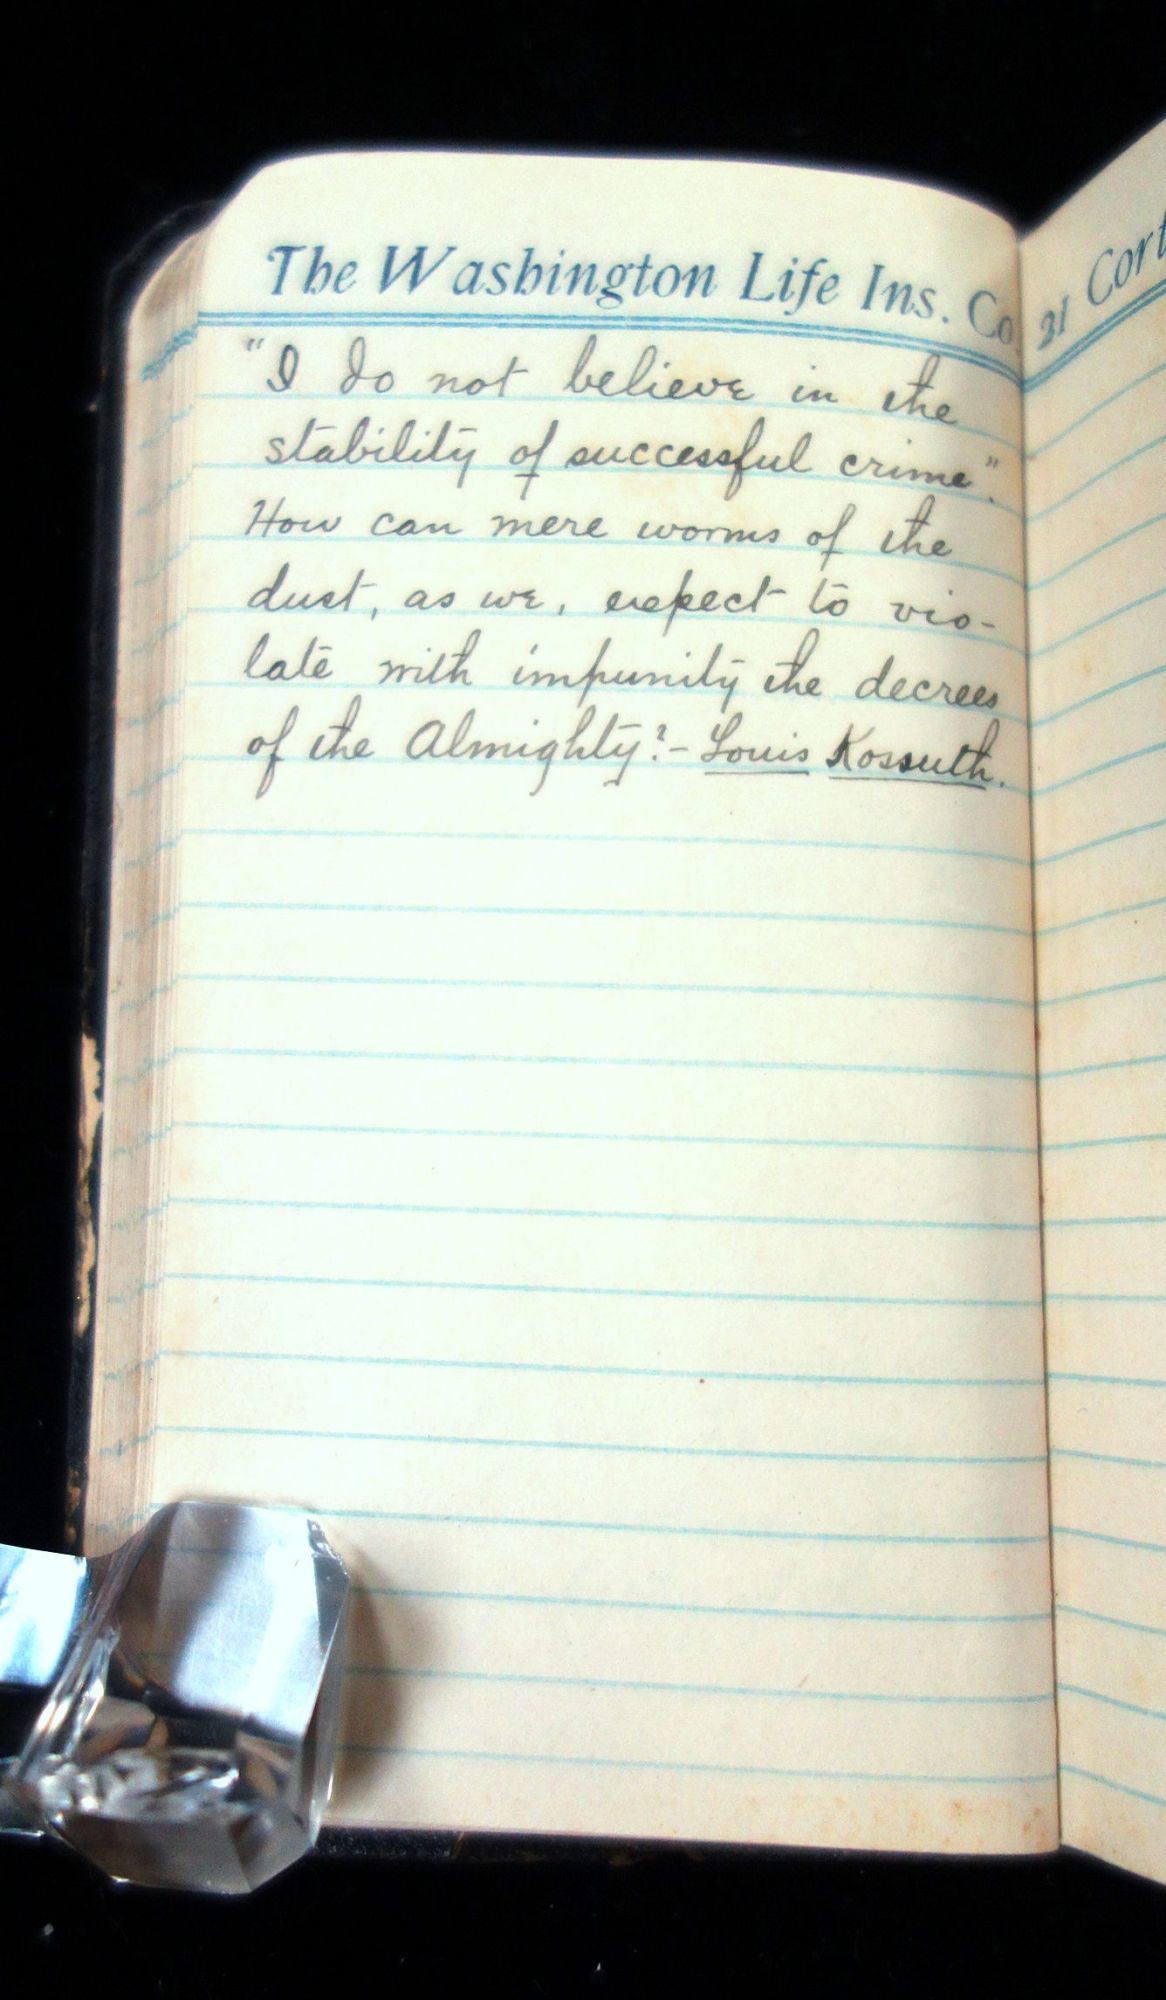 The Washington Life Ins. Co
21 Cort
"I do not believe in the
stability of successful crime".
How can mere worms of the
dust, as we, expect to vio-
late with impunity the decrees
of the Almighty? - Louis Kossuth.